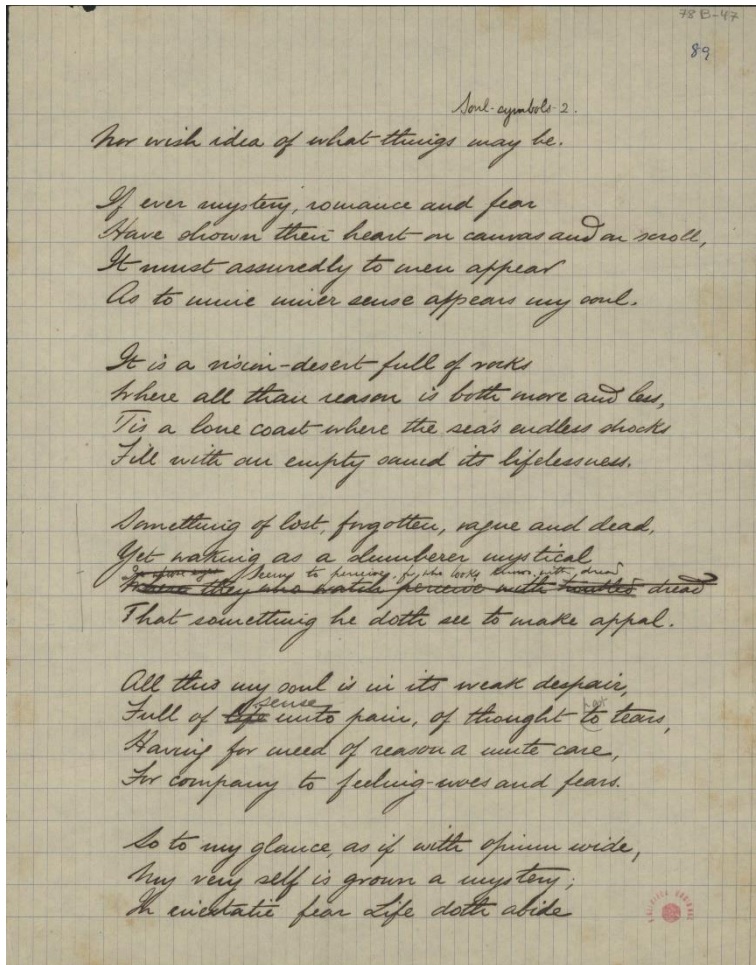 78B-47
89
Soul-symbols-2.
Nor wish idea of what things may be.
If ever mystery, romance and fear
Have shown their heart on canvas and on scroll,
It must assuredly to men appear
As to mine inner sense appears my soul.
It is a vision-desert full of rocks
Where all than reason is both more and less,
Tis a lone coast where the sea's endless shocks
Fill with an empty sound its lifelessness.
Something of lost, forgotten, vague and dead,
Yet waking as a slumberer mystical
Seems to perceive, for who looks knows with dread
Where they who watch perceive with troubled dread
That something he doth see to make appal.
All this my soul is in its weak despair,
sense for
Full of life unto pain, of thought to tears,
Having for meed of reason a mute care,
For company to feeling-woes and fears.
So to my glance, as if with opium wide,
My very self is grown a mystery;
In ecstatic fear Life doth abide